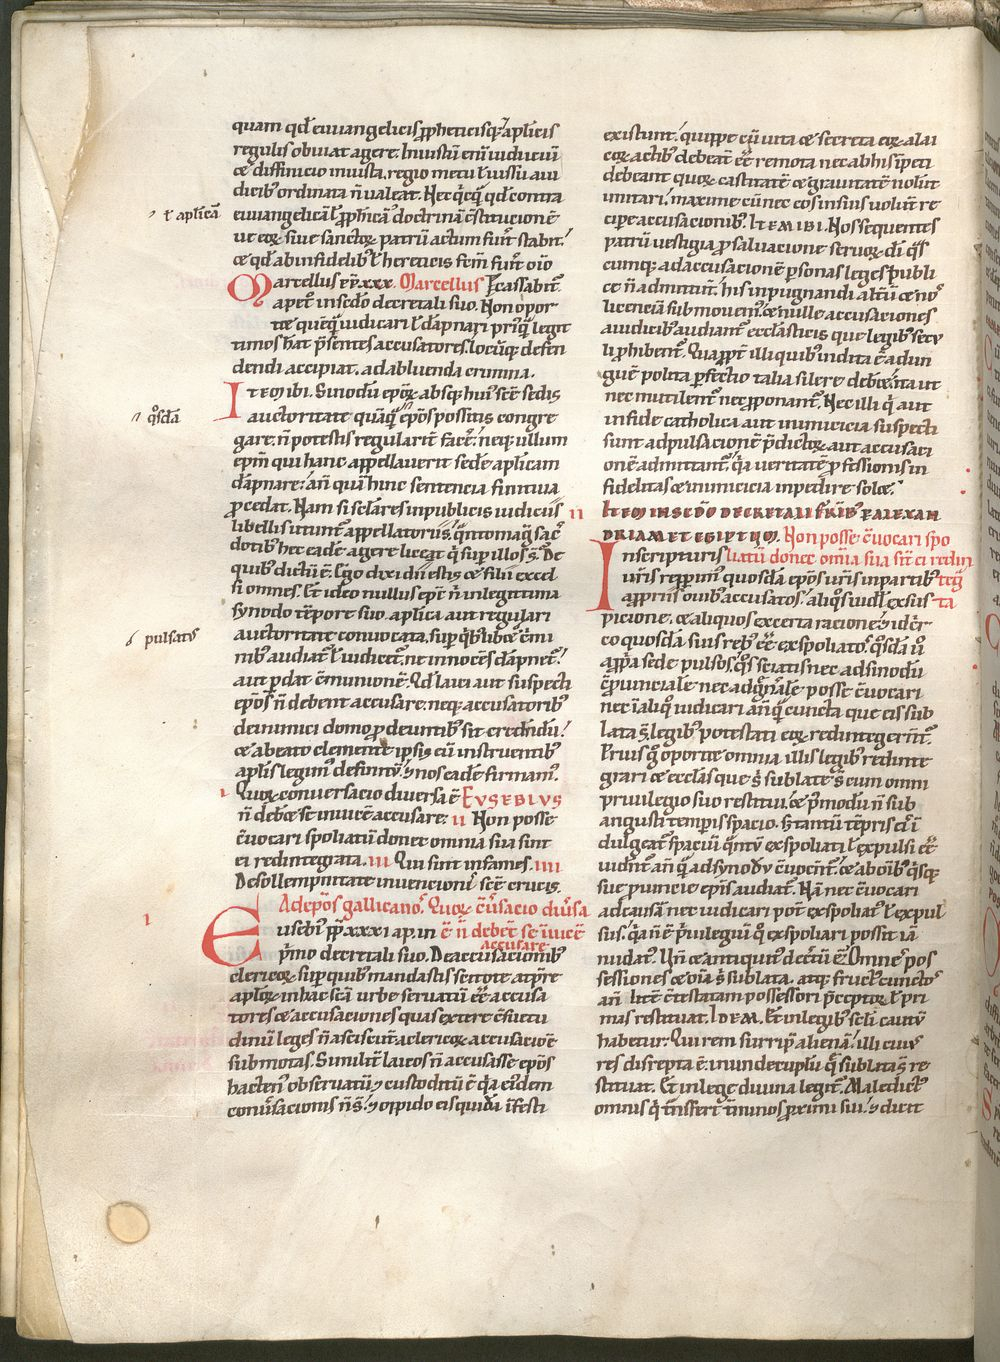 quam qđ euuangelicis ꝓpheticisq; aplicis
regulis obuiat agere. Iniustū eni iudiciū
& diffinicio iniusta, regio metu ł iussu a iu
dicib; ordinata ñ ualeat. Nec qcq qđ contra
euuangelicā ł ꝓphicā doctrinā cstitucionē
ł aplicā
ue eoꝝ siue sanctoꝝ patrū actum fuit stabit.
& qđ ab infidelib; ł hereticis fcm fuit oio
cassabit.
Marcellus pp xxx. Marcellus
apc in scdo decretali suo. Non opor
tere quēq iudicari ł dāpnari priq legit
timos hat psentes accusatores. locūq; defen
dendi accipiat. ad abluenda crimina.
Item ibi. Sinodū epoꝝ absq; hui scē sedis
auctoritate quāq epos possitis congre
qsdā
gare, ñ potestis regularit face. neq; ullum
epm qui hanc appellauerit sedē aplicam
dāpnare. añ quā hinc sentencia finitiua
ꝓcedat. Nam si sclares in publicis iudiciis
libellis utunt appellatoriis, qntomagis sac
dotib; hec eadē agere liceat q sup illos s. De
quib; dictū ē. Ego dixi dii estis & filii excel
si omnes. Et ideo nullus epc ñ in legittima
synodo tēpore suo aplica aut regulari
auctoritate conuocata, sup qblib& cimi
pulsatus
nib; audiat ł iudicet, ne innocēs dāpnet.
aut pdat cmunionē. Qđ laici aut suspecti
epos ñ debent accusare. neq; accusatorib;
de inimici domo ꝓdeuntib; sit credndū.
& a beato clemente ipsis cū instruentib;
aplis legim definitū. & nos eadē firmam.
i Quoꝝ conuersacio diuersa ē EVSEBIVS
ñ deb& se inuicē accusare. ii Non posse
cuocari spoliatū donec omnia sua sint
ei redintegrata. iii Qui sint infames. iiii
De sollempnitate inuencioni scē crucis.
i
Ad epos gallicano. Quoꝝ cusacio diuersa
Eusebi pp xxxi ap. in ē ñ debet se iuicē
accusare.
pmo decretali suo. De accusacionib;
clericoꝝ, sup quib; mandastis scitote a tpre
aploꝝ in hac scā urbe seruatū ē accusa
tores & accusaciones quas extere csuetu
dinū leges ñ asciscunt a clericoꝝ accusacione
submotas. Similit laicos ñ accusasse epos
hacten obseruatū & custoditū ē qa eidem
conusacionis ñ s. & oppido eis quidā ifesti
existunt. quippe cū uita & secreta eoꝝ a lai
coꝝ actib; debeat ēē remota nec ab his ipeti
debeant quoꝝ castitatē & grauitatē nolūt
imitari. maxime cū nec eos in suis uolūt re
cipere accusacionib;. ITEM IBI. Nos sequentes
patrū uestigia ꝓ saluacione seruoꝝ di qs
cumq; ad accusacionē psonas leges publi
ce ñ admittūt. his inpugnandi altū & nos
licenciā submouem. & nulle accusaciones
a iudicib; audiant ecclasticis que legib; secu
li phibent. Quappt illi quib; indita ē ad un
guē polita pfectio talia silere deb&. ita ut
nec mutilent nec ꝓponant. Nec illi q aut
in fide catholica aut inimicicia suspecti
sunt ad pulsacionē pdictoꝝ aut accusaci
onē admittant, qa ueritatē ꝓfessionis in
fidelitas & inimicicia inpedire sol&.
ii ITEM IN SCDO DECRETALI FRIB; P ALEXAN
DRIAM ET EGIPTUM. Non posse cuocari spo
In scripturis liatū donec omia sua sit ei redin
uris repperim quosdā epos uris in partib; teg
a ꝓpriis ouib; accusatos. aliqs uidl ex sus ta
picione. & aliquos ex certa racione. & idcir
co quosdā suis reb; ēē exspoliatos. qsdā û
a ꝓpa sede pulsos. qs sciatis nec ad sinodū
ꝓuincialē nec ad gnalē posse cuocari
nec i aliq iudicari añq cuncta que eis sub
lata s legib; potestati eoꝝ redintegernt.
Prius g oport& omnia illis legib; redinte
grari & ecclas que s sublate s cum omni
priuilegio suo restitui. & pmodū ñ sub
angusta temporis spacio. s tantū tēpris ci i
dulgeat spaciū qntū exspoliati ł expulsi ēē
uident añ q ad synodū cuocent. & ab oib; qsq;
sue puincie epis audiat. Nā nec cuocari
ad causā nec iudicari pot exspoliat ł expul
sus. qa ñ ē priuilegiū q exspoliari possit iā
nudat. Uñ & antiquit decretū ē. Omne pos
sessiones & oia s sublata. atq; fruct cuncto
añ lite cestatam possessori pceptoꝝ ł pri
mas restituat. IDEM. Et in legib; scli cautū
habetur. Qui rem surripit aliena. illi cuius
res disrepta ē. in undecuplū q sublata s re
stituat. Et in lege diuina legit. Maledict
omnis q tnsfert tminos proximi sui. & dicit